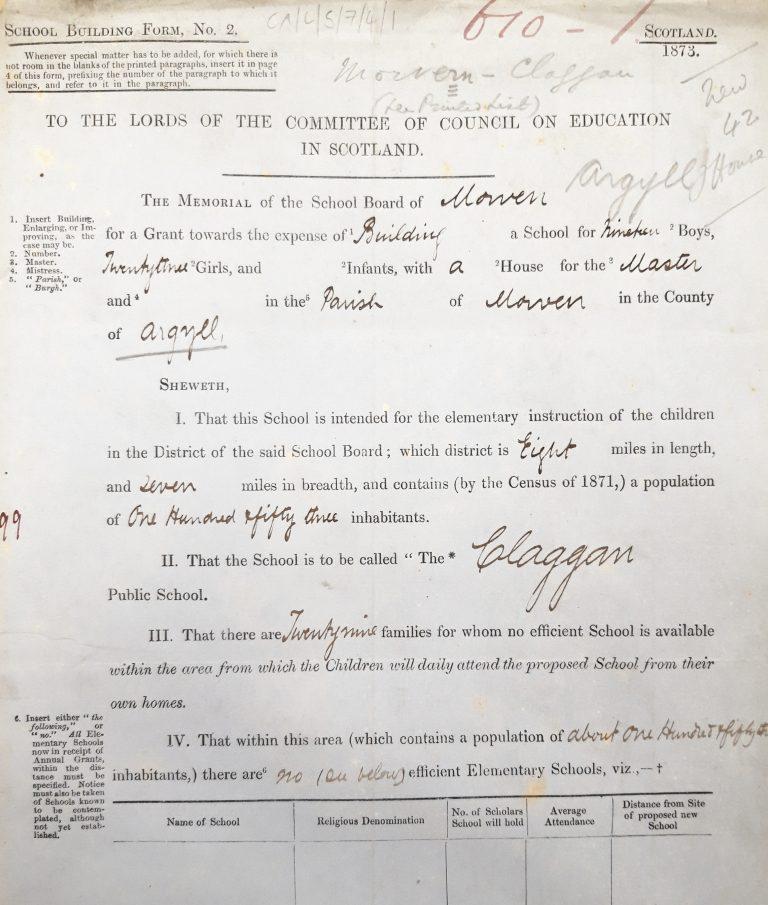 CA/L/5/7/4/1
610 - 1
SCHOOL BUILDING FORM, NO. 2.
SCOTLAND.
1873.
Whenever special matter has to be added, for which there is
not room in the blanks of the printed paragraphs, insert it in page
4 of this form, prefixing the number of the paragraph to which it
belongs, and refer to it in the paragraph.
Morvern - Claggan
(See Printed List)
New
42
TO THE LORDS OF THE COMMITTEE OF COUNCIL ON EDUCATION
IN SCOTLAND.
Argyll House
THE MEMORIAL of the School Board of Morven
1. Insert Building,
Enlarging, or Im-
proving, as the
case may be.
2. Number.
3. Master.
4. Mistress.
5. "Parish," or
"Burgh."
for a Grant towards the expense of ¹ Building a School for Nineteen ² Boys,
Twentythree ² Girls, and ² Infants, with a ² House for the ³ Master
and ⁴ in the ⁵ Parish of Morven in the County
of Argyll,
SHEWETH,
I. That this School is intended for the elementary instruction of the children
in the District of the said School Board; which district is Eight miles in length,
and Seven miles in breadth, and contains (by the Census of 1871,) a population
of One Hundred & fifty three inhabitants.
99
II. That the School is to be called "The * Claggan
Public School.
III. That there are Twentynine families for whom no efficient School is available
within the area from which the Children will daily attend the proposed School from their
own homes.
6. Insert either "the
following," or
"no." All Ele-
mentary Schools
now in receipt of
Annual Grants,
within the dis-
tance must be
specified. Notice
must also be taken
of Schools known
to be contem-
plated, although
not yet estab-
lished.
IV. That within this area (which contains a population of about One Hundred & fifty th
inhabitants,) there are ⁶ no (see below) efficient Elementary Schools, viz.,— †
Name of School
Religious Denomination
No. of Scholars
School will hold
Average
Attendance
Distance from Site
of proposed new
School